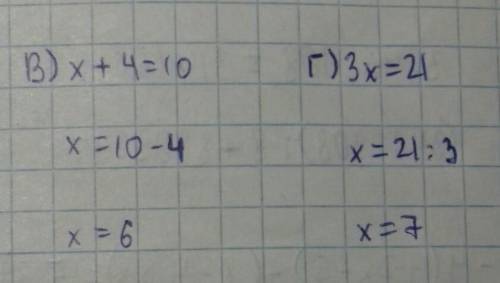 В) x + 4 = 10
x = 10 - 4
x = 6
Г) 3x = 21
x = 21 : 3
x = 7